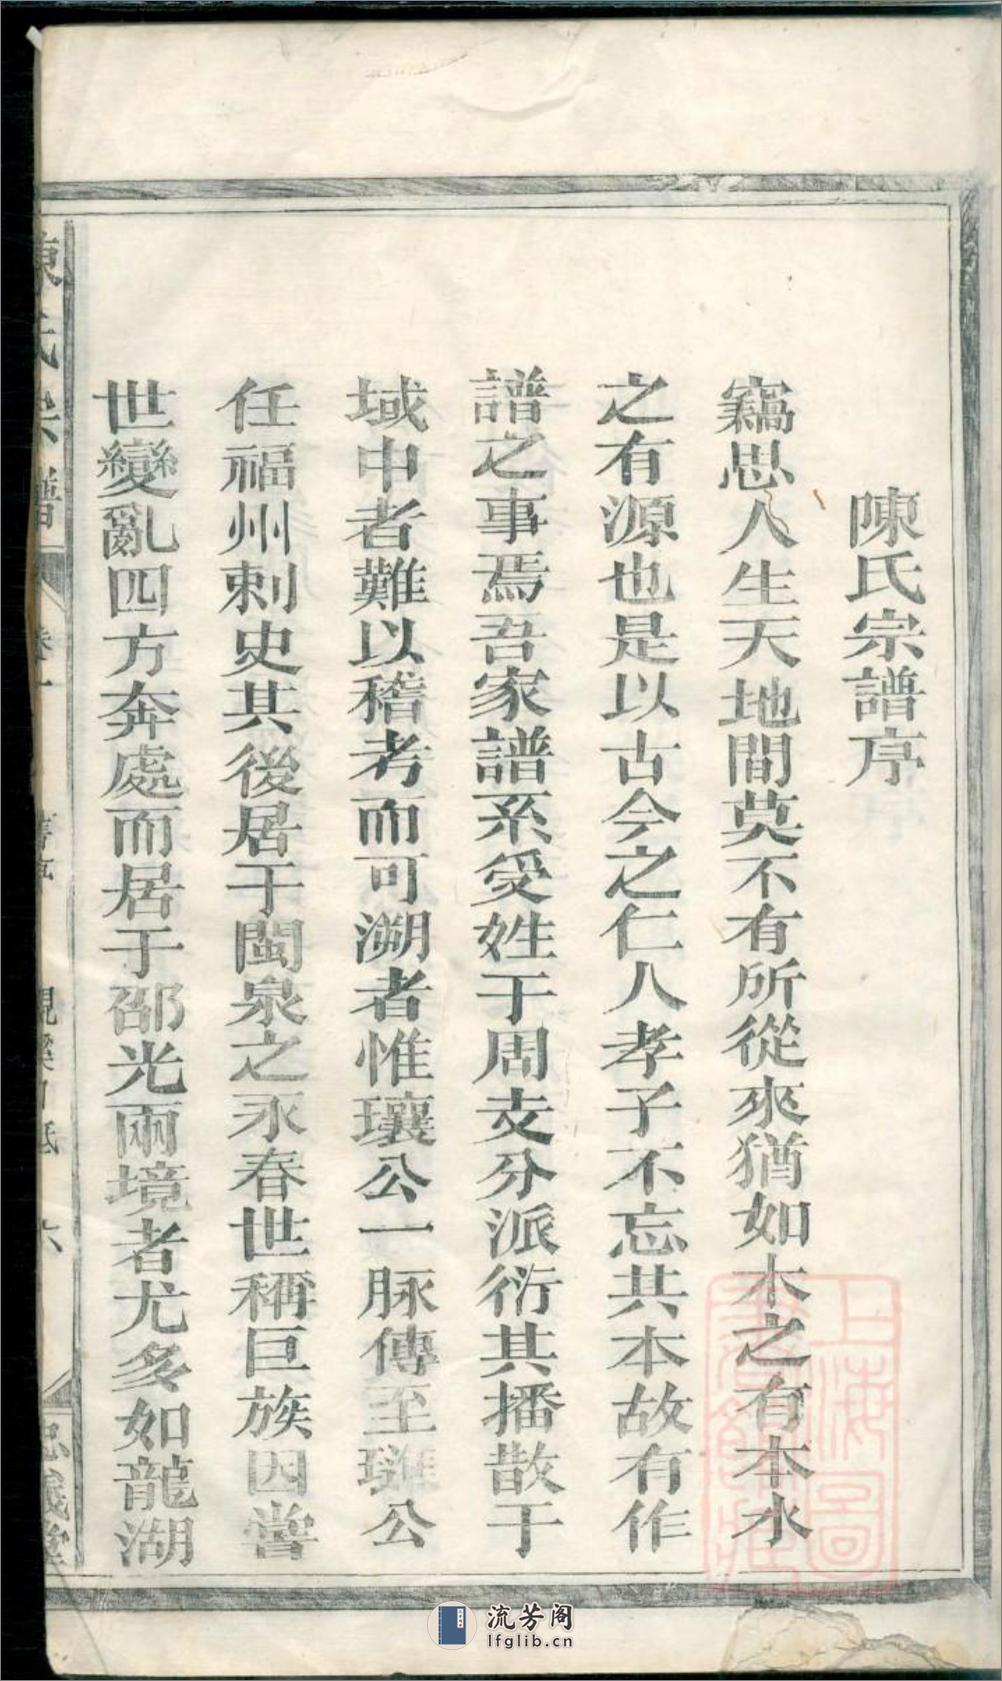 陳氏宗譜序
竊思人生天地間莫不有所從來猶如木之有本水
之有源也是以古今之仁人孝子不忘其本故有作
譜之事焉吾家譜系受姓于周支分派衍其播散于
域中者難以稽考而可溯者惟瓖公一脉傳至璀公
任福州刺史其後居于閩泉之永春世稱巨族因當
世變亂四方奔處而居于邵光兩境者尤多如龍湖
陳氏宗譜
卷一
舊序
六
忠義堂
上海圖書館藏
流芳阁
lfglib.cn